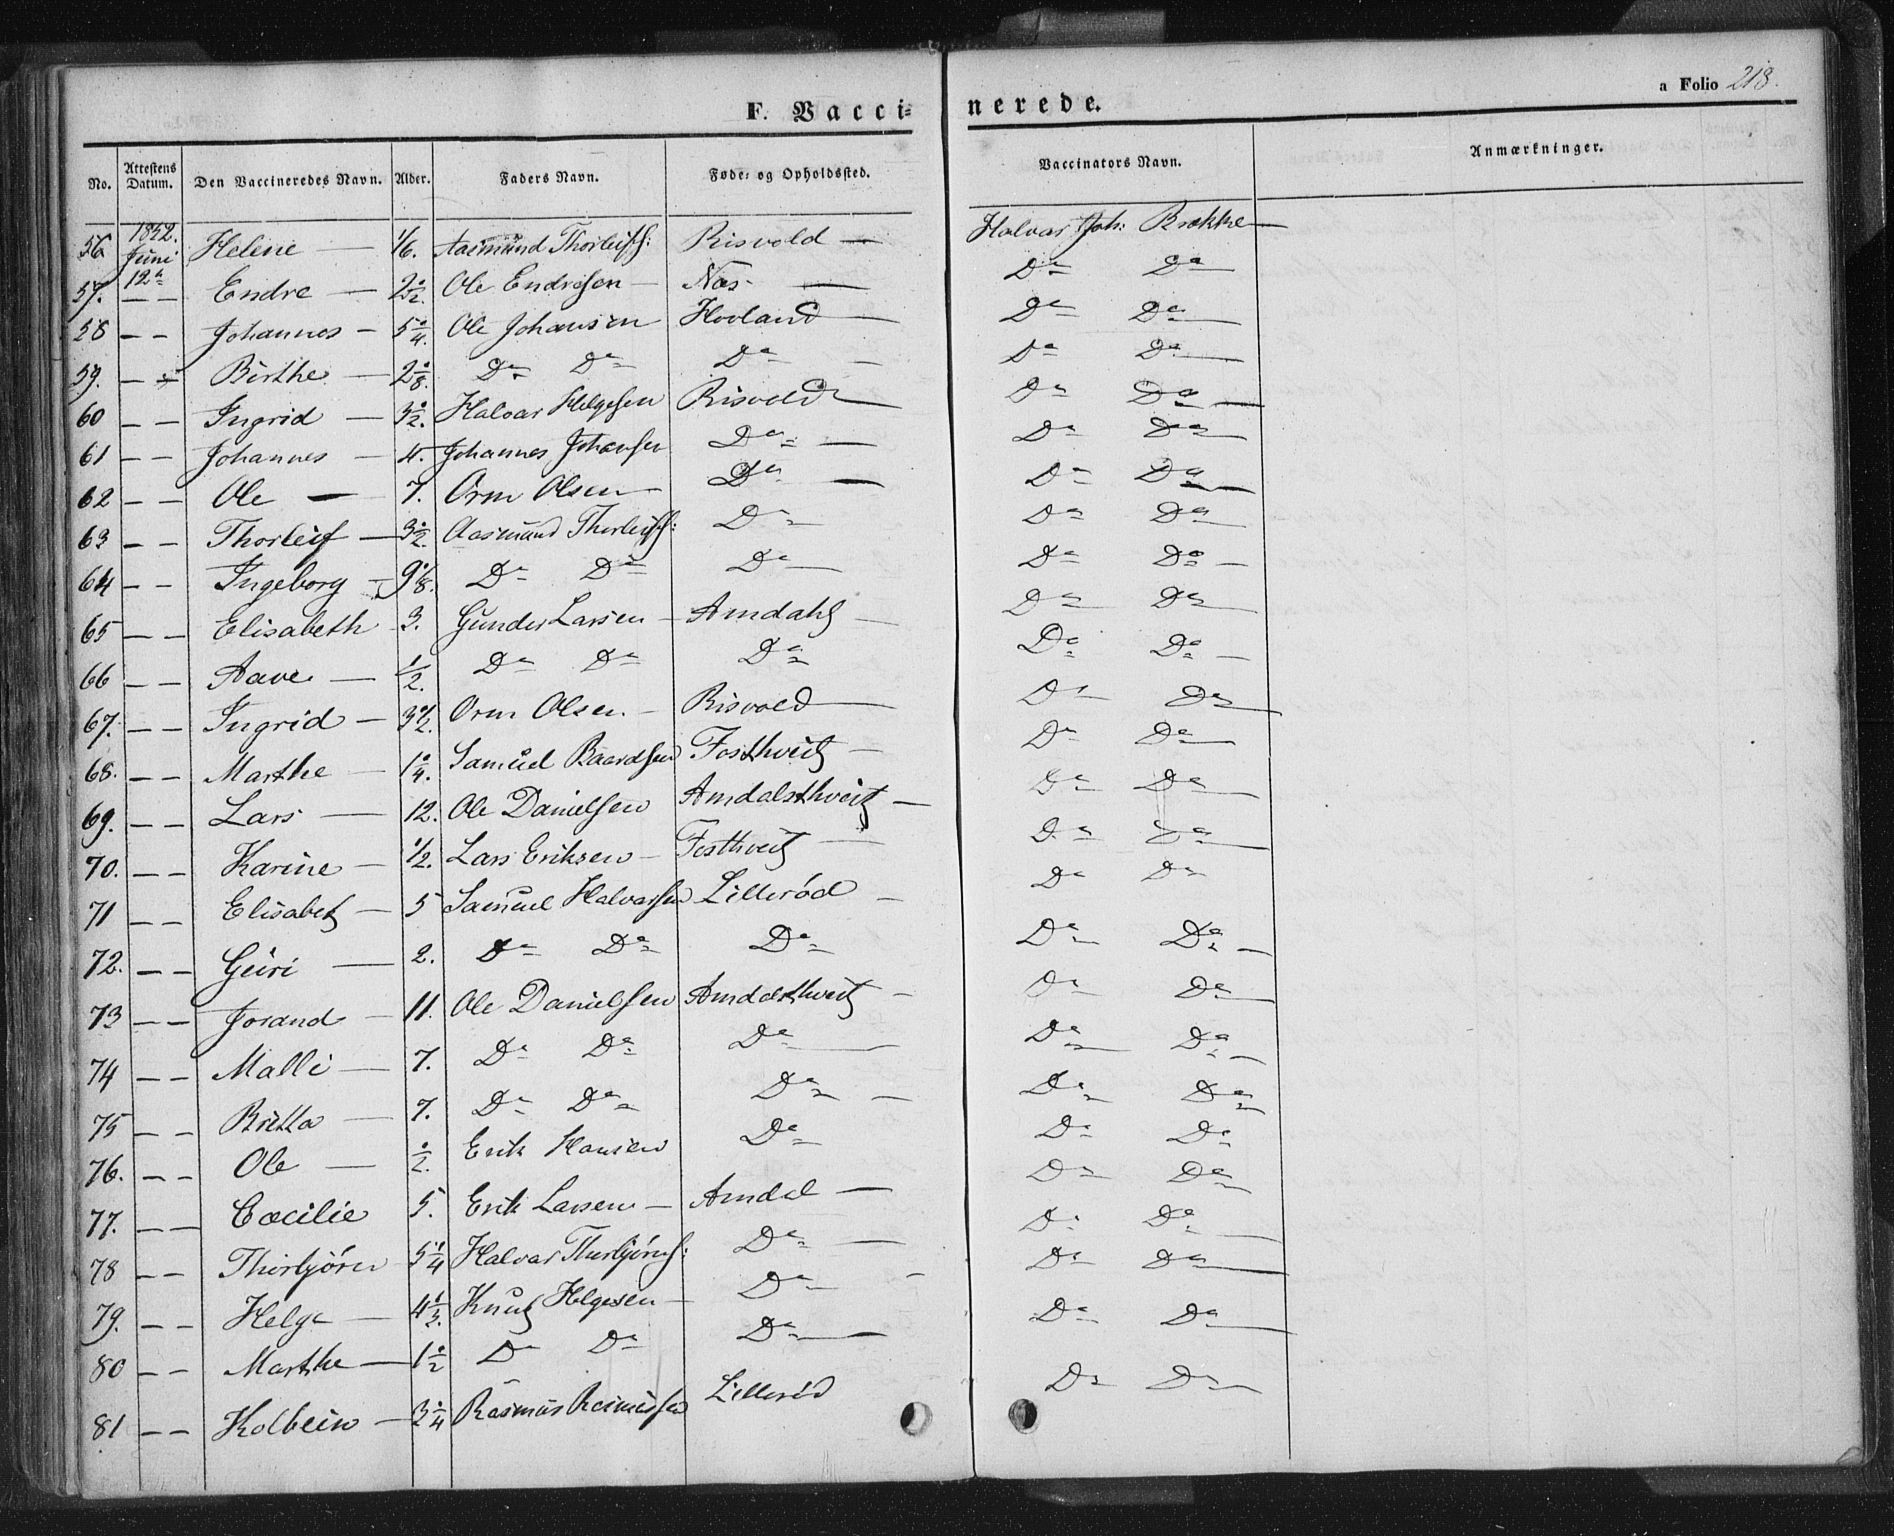 a Folio 218.
F. Vacci= nerede.
No. Attestens Datum. Den Vaccineredes Navn. Alder. Faders Navn. Føde= og Opholdssted. Vaccinators Navn. Anmærkninger.
56 1842. Juni 12te Helene — 1/6. Aasmund Thorleifs: Risvold — Halvar Joh: Brekke —
57. — — Endre — 2 1/2. Ole Endresen — Næs — Do Do
58 — — Johannes — 5 1/4. Ole Johansen Hovland — Do Do
59. — — Birthe — 2 1/8. Do Do Do — Do Do
60 — — Ingrid — 3 1/2. Halvar Helgesen Risvold — Do Do —
61 — — Johannes — 4. Johannes Johansen Do — Do Do
62 — — Ole — 7. Orm Olsen — Do — Do Do
63 — — Thorleif — 3 1/2. Aasmund Thorleifs: Do Do Do
64 — — Ingeborg — 9 1/8. Do Do Do — Do Do —
65 — — Elisabeth 3. Gunder Larsen — Amdahl — Do Do
66 — — Aave — 1/2. Do Do Do Do Do —
67. — — Ingrid — 3 1/2. Orm Olsen — Risvold — Do Do
68. — — Marthe — 1 1/4. Samuel Baardsen Fosthveit — Do Do
69. — — Lars — 12. Ole Danielsen Amdalsthveit — Do Do
70. — — Karine — 1/2. Lars Eriksen — Fosthveit — Do Do
71 — — Elisabet — 5 Samuel Halvarsen Lillerød — Do Do
72. — — Geiri — 2. Do Do Do Do Do —
73 — — Jorand — 11. Ole Danielsen Amdalsthveit — Do Do
74 — — Malli — 7. Do Do Do — Do Do —
75 — — Britta — 7. Do Do Do — Do Do
76. — — Ole — 1/2. Erik Hansen Do Do Do
77. — — Cæcilie 5. Erik Larsen — Amdal — Do Do
78 — — Thorbjørn 5 1/4 Halvar Thorbjørns: Do — Do Do
79. — — Helge — 4 1/3. Knut Helgesen — Do — Do Do
80 — — Marthe — 1 1/2 Do Do Do — Do Do
81 — — Kolbein — 3 1/4 Rasmus Lillerød Do Do